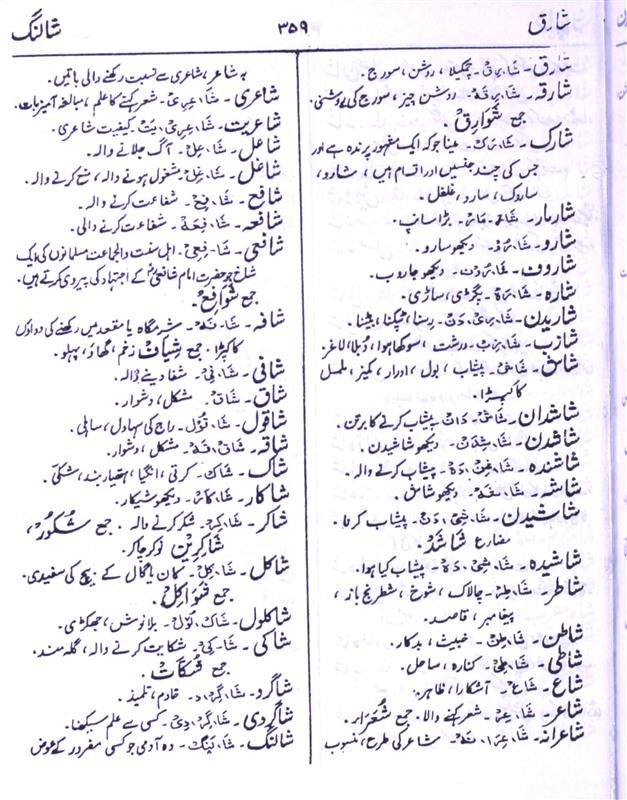 شارق
۳۵۹
شالنگ
شارق۔ شَا۔رِقْ۔ چمکیلا، روشن، سورج۔
شارقہ۔ شَا۔رِ۔قَہْ۔ روشن چیز، سورج کی روشنی۔
جمع شَوَارِق۔
شارک۔ شَا۔رَکْ۔ مینا جو کہ ایک مشہور پرندہ ہے اور
جس کی چند جنسیں اور اقسام ہیں، شارو،
ساروک، سارو، غلغل۔
شارمار۔ شَارْ۔مَارْ۔ بڑا سانپ۔
شارو۔ شَا۔رُوْ۔ دیکھو سارو۔
شاروف۔ شَا۔رُوْفْ۔ دیکھو جاروب۔
شارہ۔ شَا۔رَہْ۔ پگڑی، ساڑی۔
شاریدن۔ شَا۔رِیْ۔دَنْ۔ رسنا، ٹپکنا، بیٹنا۔
شازب۔ شَا۔زِبْ۔ درشت، سوکھا ہوا، دُبلا، لاغر۔
شاش۔ شَاشْ۔ پیشاب، بول، ادرار، کمیز، ململ
کا کپڑا۔
شاشدان۔ شَاشْ۔دَانْ۔ پیشاب کرنے کا برتن۔
شاشدن۔ شَا۔شِدَنْ۔ دیکھو شاشیدن۔
شاشندہ۔ شَا۔شِنْ۔دَہْ۔ پیشاب کرنے والہ۔
شاشہ۔ شَا۔شَہْ۔ دیکھو شاش۔
شاشیدن۔ شَا۔شِیْ۔دَنْ۔ پیشاب کرنا۔
مضارع شَاشَدْ۔
شاشیدہ۔ شَا۔شِیْ۔دَہْ۔ پیشاب کیا ہوا۔
شاطر۔ شَا۔طِرْ۔ چالاک، شوخ، شطرنج باز،
پیغامبر، قاصد۔
شاطن۔ شَا۔طِنْ۔ خبیث، بدکار۔
شاطی۔ شَا۔طِیْ۔ کنارہ، ساحل۔
شاع۔ شَاعْ۔ آشکارا، ظاہر۔
شاعر۔ شَا۔عِرْ۔ شعر کہنے والا۔ جمع شُعَرَاء۔
شاعرانہ۔ شَا۔عِرَا۔نَہْ۔ شاعر کی طرح، منسوب
بہ شاعر، شاعری سے نسبت رکھنے والی باتیں۔
شاعری۔ شَا۔عِرِیْ۔ شعر کہنے کا علم، مبالغہ آمیز بات۔
شاعریت۔ شَا۔عِرِیْ۔یَتْ۔ کیفیت شاعری۔
شاعل۔ شَا۔عِلْ۔ آگ جلانے والہ۔
شاغل۔ شَا۔غِلْ۔ مشغول ہونے والہ، منع کرنے والہ۔
شافع۔ شَا۔فِعْ۔ شفاعت کرنے والہ۔
شافعہ۔ شَا۔فِعَہْ۔ شفاعت کرنے والی۔
شافعی۔ شَا۔فِعِیْ۔ اہل سنت والجماعت مسلمانوں کی ایک
شاخ جو حضرت امام شافعیؒ کے اجتہاد کی پیروی کرتے ہیں۔
جمع شَوَافِع۔
شافہ۔ شَا۔فَہْ۔ شرمگاہ یا مقعد میں رکھنے کی دواؤں
کا کپڑا۔ جمع شِیاف زخم، گھاؤ، پہلو۔
شافی۔ شَا۔فِیْ۔ شفا دینے والہ۔
شاق۔ شَاقْ۔ مشکل، دشوار۔
شاقول۔ شَا۔قُوْلْ۔ راج کی سہاول، ساہلی۔
شاقہ۔ شَاقْ۔قَہْ۔ مشکل، دشوار۔
شاک۔ شَاکْ۔ کرتی، انگیا، ہتھیار بند، شکّی۔
شاکار۔ شَا۔کَارْ۔ دیکھو شیکار۔
شاکر۔ شَا۔کِرْ۔ شکر کرنے والہ۔ جمع شُکُوْر،
شاکِرِین نوکر چاکر۔
شاکل۔ شَا۔کِلْ۔ کمان یا گال کے بیچ کی سفیدی۔
جمع شَوَاکِل۔
شاکلول۔ شَاکْ۔لُوْلْ۔ بلانوش، جھکڑی۔
شاکی۔ شَا۔کِیْ۔ شکایت کرنے والہ، گلہ مند۔
جمع شُکَات۔
شاگرد۔ شَا۔گِرْد۔ خادم، تلمیذ۔
شاگردی۔ شَا۔گِرْ۔دِیْ۔ کسی سے علم سیکھنا۔
شالنگ۔ شَا۔لَنْگْ۔ وہ آدمی جو کسی مفرور کے عوض